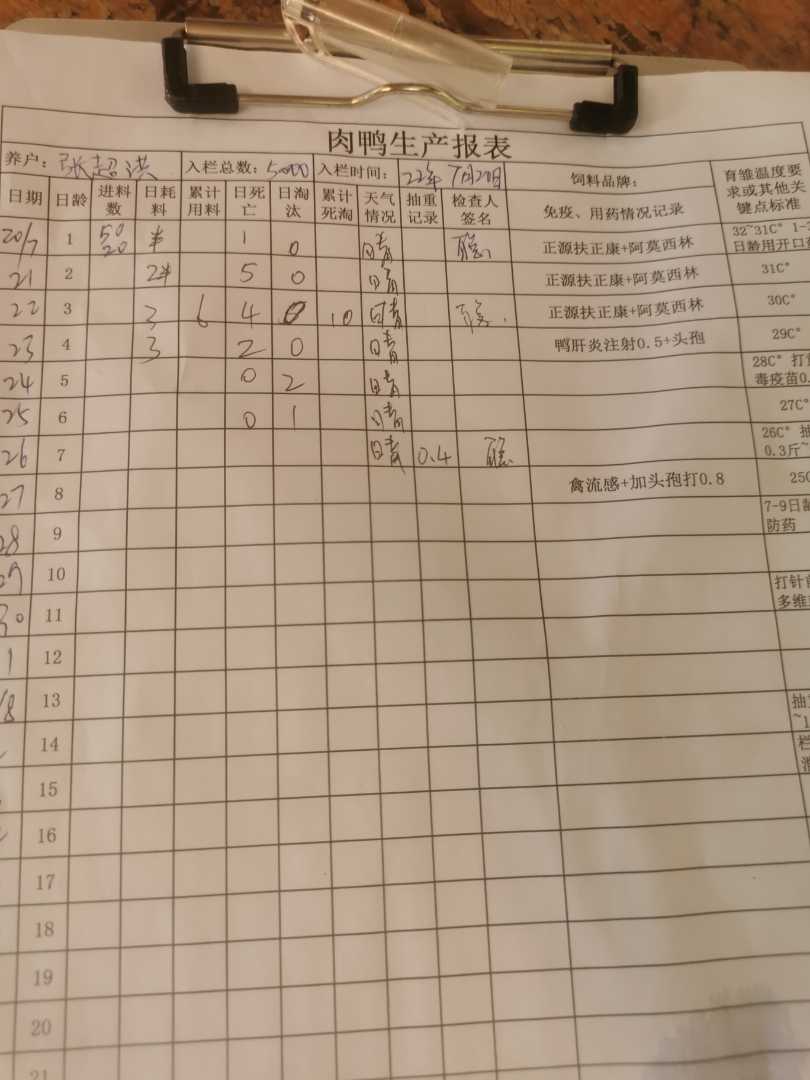 肉鸭生产报表
养户: 张超洪 入栏总数: 5000 入栏时间: 22年7月20日 饲料品牌:
日期 日龄 进料数 日耗料 累计用料 日死亡 日淘汰 累计死淘 天气情况 抽重记录 检查人签名 免疫、用药情况记录 育雏温度要求或其他关键点标准
20/7 1 50 20 1 0 晴 正源扶正康+阿莫西林 32~31C° 日龄用开口
21 2 2# 5 0 晴 正源扶正康+阿莫西林 31C°
22 3 3 6 4 0 10 晴 正源扶正康+阿莫西林 30C°
23 4 3 2 0 晴 鸭肝炎注射0.5+头孢 29C°
24 5 0 2 晴 28C° 毒疫苗0.
25 6 0 1 晴 27C°
26 7 晴 0.4 26C° 抽 0.3斤~
27 8 禽流感+加头孢打0.8 25
28 9 7-9日龄 防药
29 10
30 11 打针前 多维
1 12
/8 13
14
15
16
17
18
19
20
21